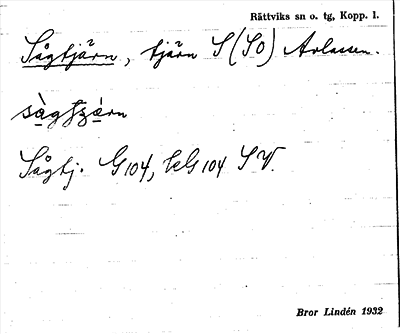 Rättviks sn o. tg, Kopp. l.
Sågtjärn, tjärn S (SO) Arlassen.
Sågtj. G104, EG104 SV.
Bror Lindén 1932